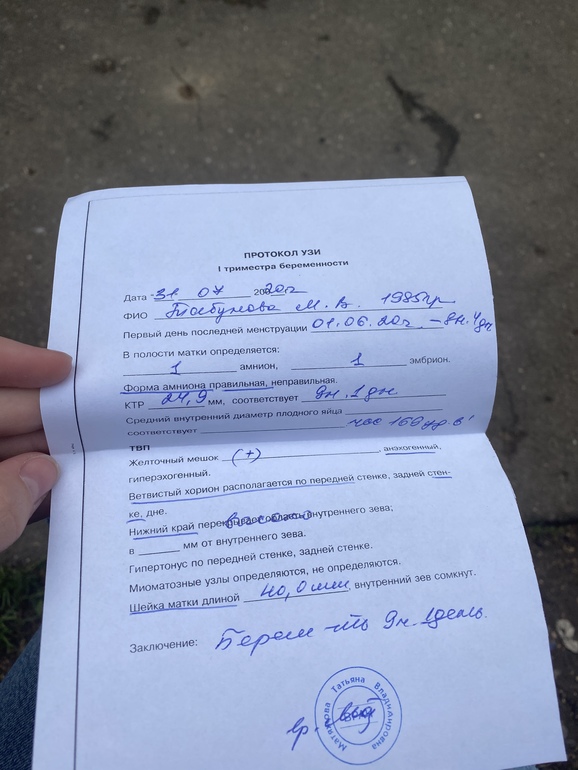 ПРОТОКОЛ УЗИ
I триместра беременности
Дата 31 07 2020г
ФИО М. В. 1985гр
Первый день последней менструации 01.06.20г. – 8н. 4дн
В полости матки определяется:
1 амнион, 1 эмбрион.
Форма амниона правильная, неправильная.
КТР 24,9 мм, соответствует 9н. 1дн.
Средний внутренний диаметр плодного яйца
соответствует чсс 169 уд в 1'
ТВП
Желточный мешок (+) анэхогенный,
гиперэхогенный.
Ветвистый хорион располагается по передней стенке, задней стен-
ке, дне.
Нижний край перекрывает область внутреннего зева;
в мм от внутреннего зева.
Гипертонус по передней стенке, задней стенке.
Миоматозные узлы определяются, не определяются.
Шейка матки длиной 40,0мм, внутренний зев сомкнут.
Заключение: Берем-ть 9н. 1день.
вр.
Татьяна Владимировна